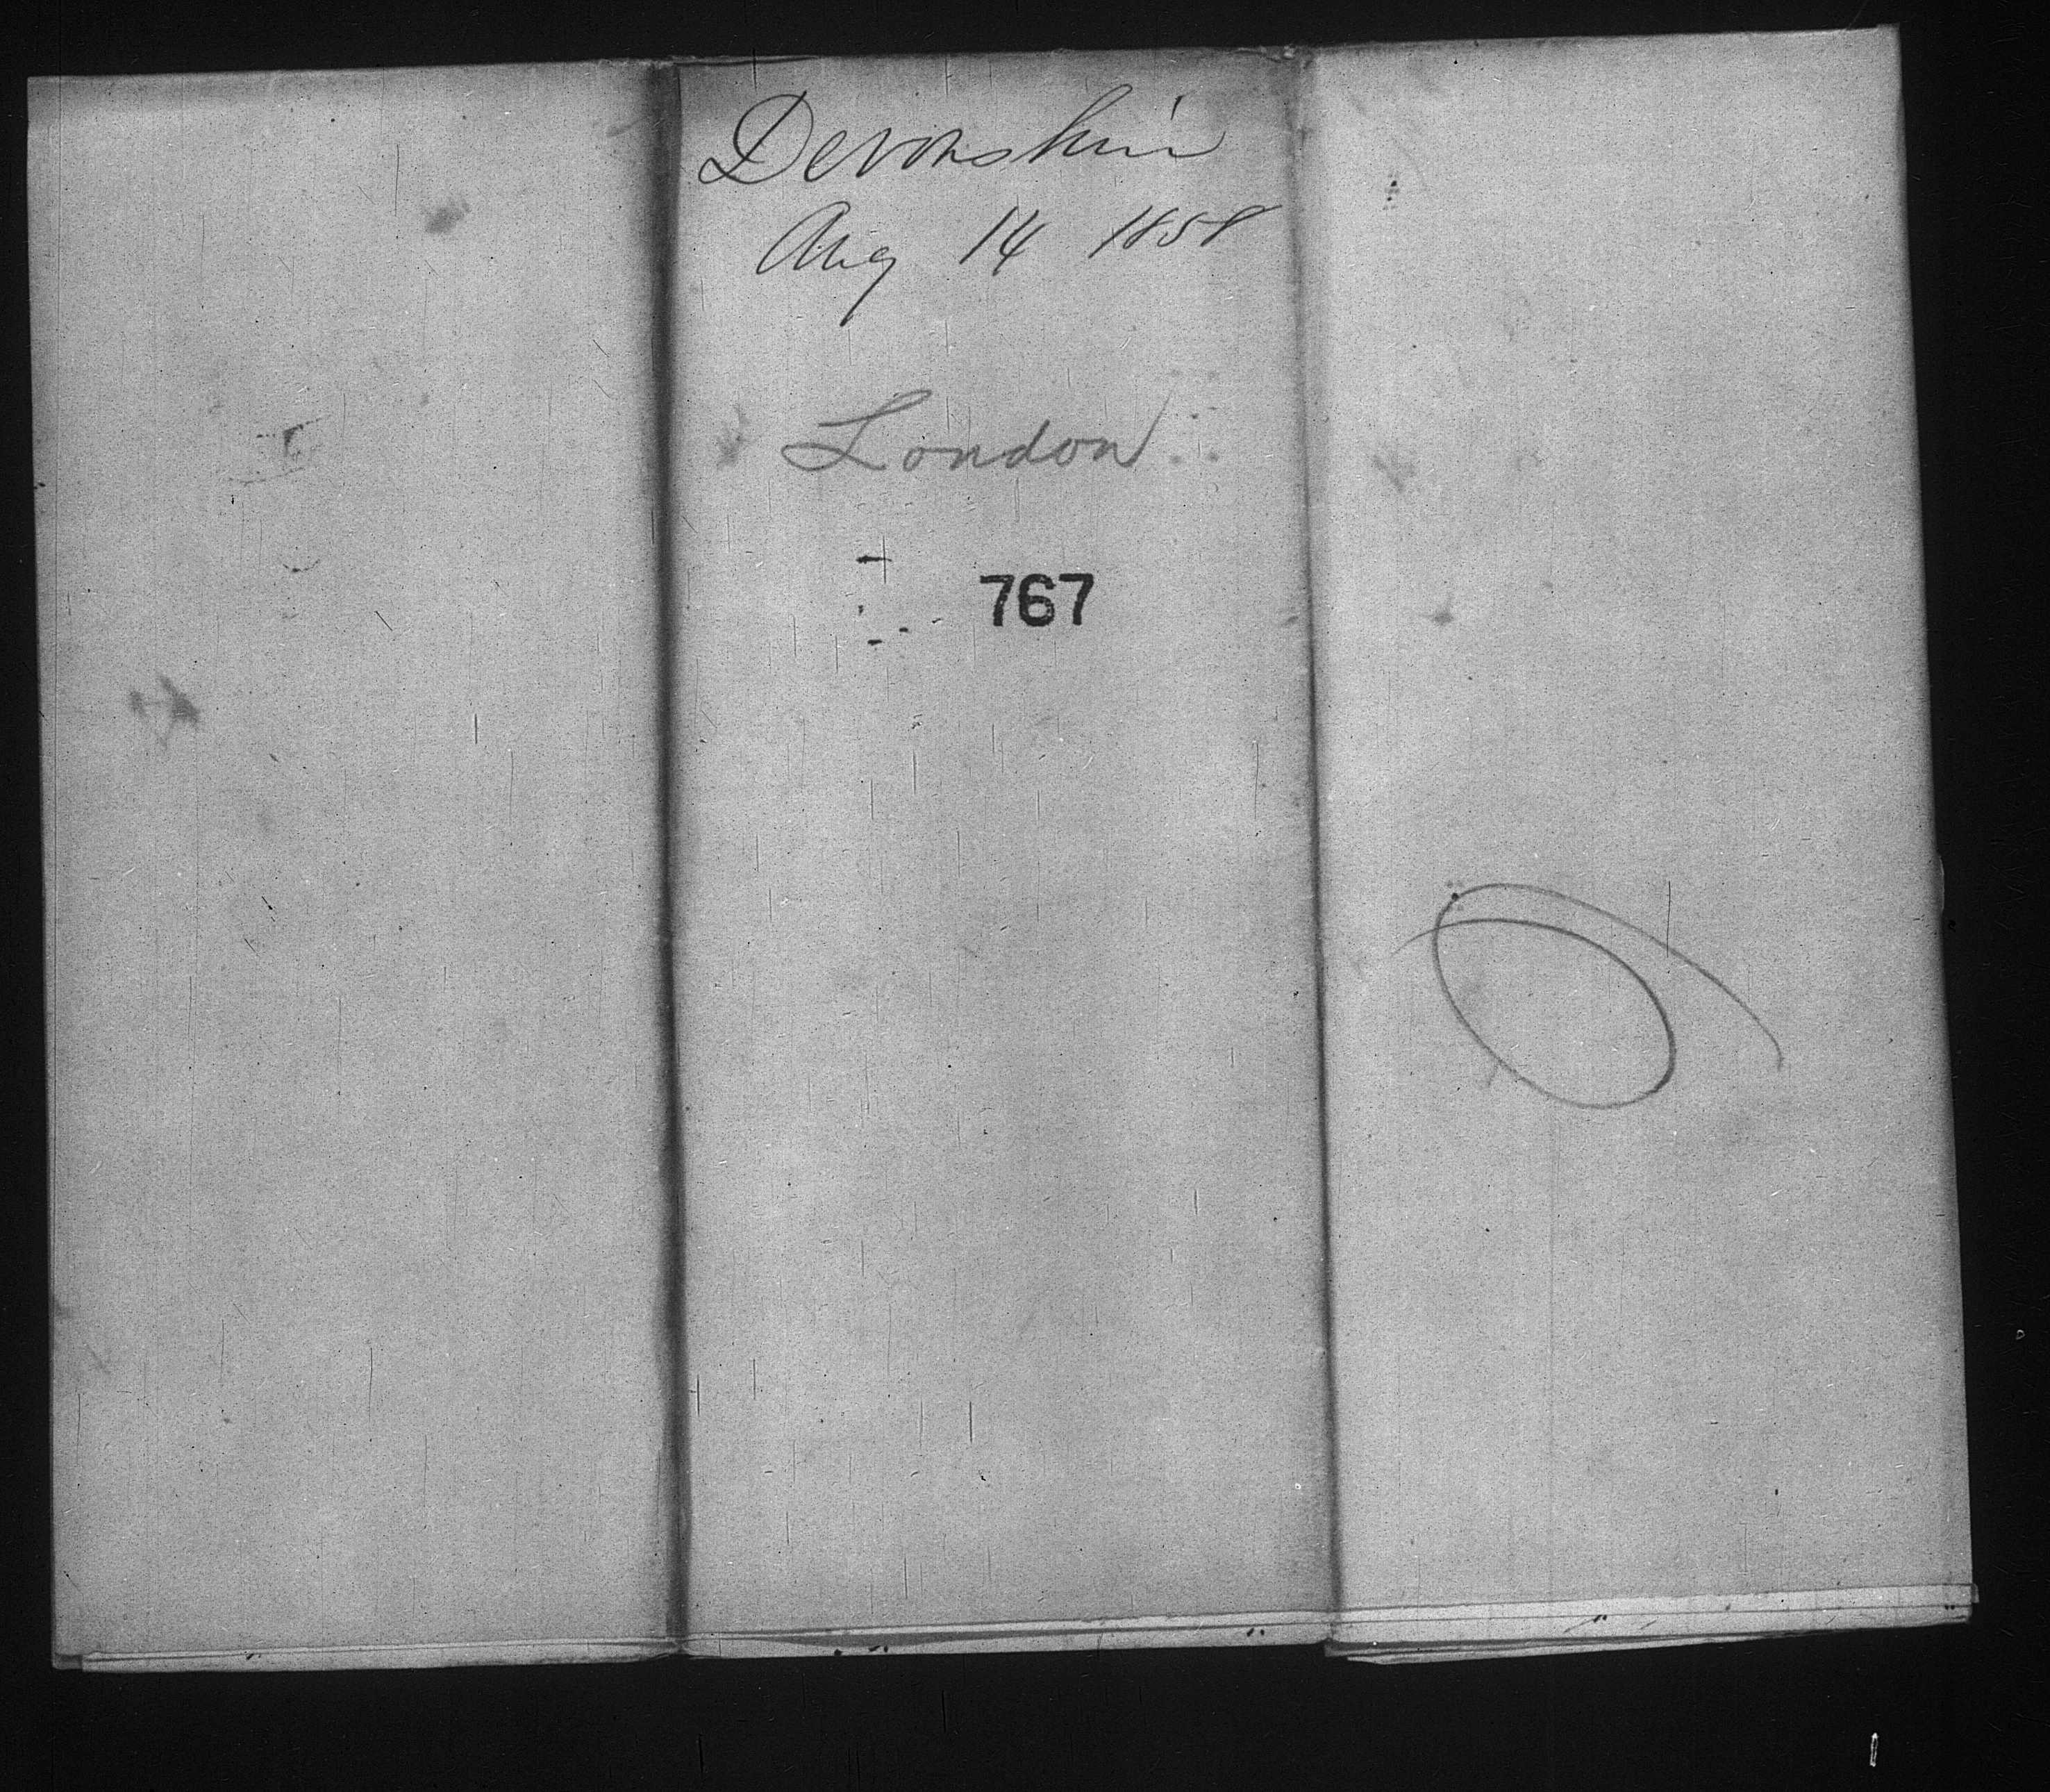 Devonshire
Aug 14 1858
London
767